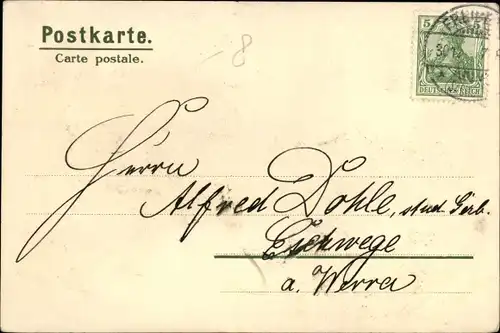 Postkarte.
Carte postale.
8
5
DEUTSCHES REICH
Herrn
Alfred Dohle, stud. Gerb.
Eschwege
a. Werra